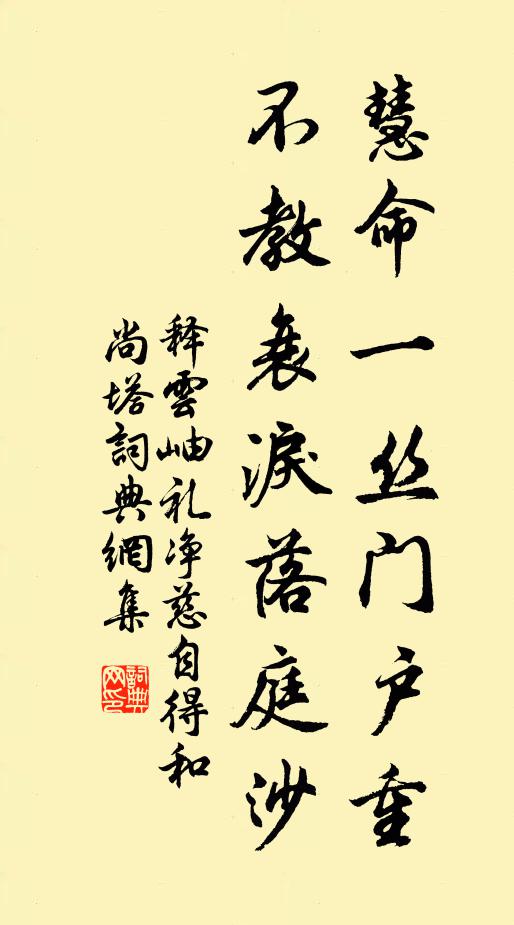 慧命一丝门户重
不教衰淚落庭沙
释雲岫礼净慈自得和
尚塔詞典網集
詞典
网印